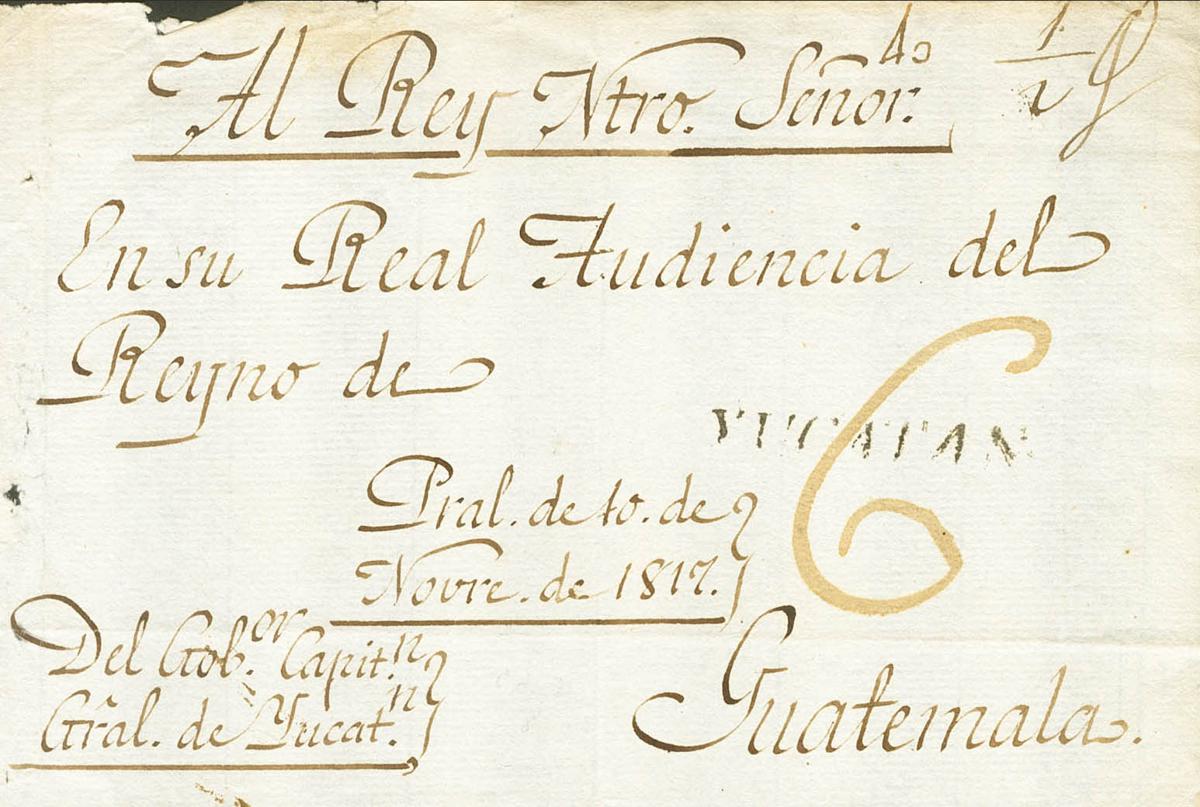 Al Rey Ntro. Señor.
1/2
En su Real Audiencia del
Reyno de
YUCATAN
6
Pral. de 10. de
Novre. de 1817.
Del Gob.or Capit.n
Grãl. de Yucat.n
Guatemala.